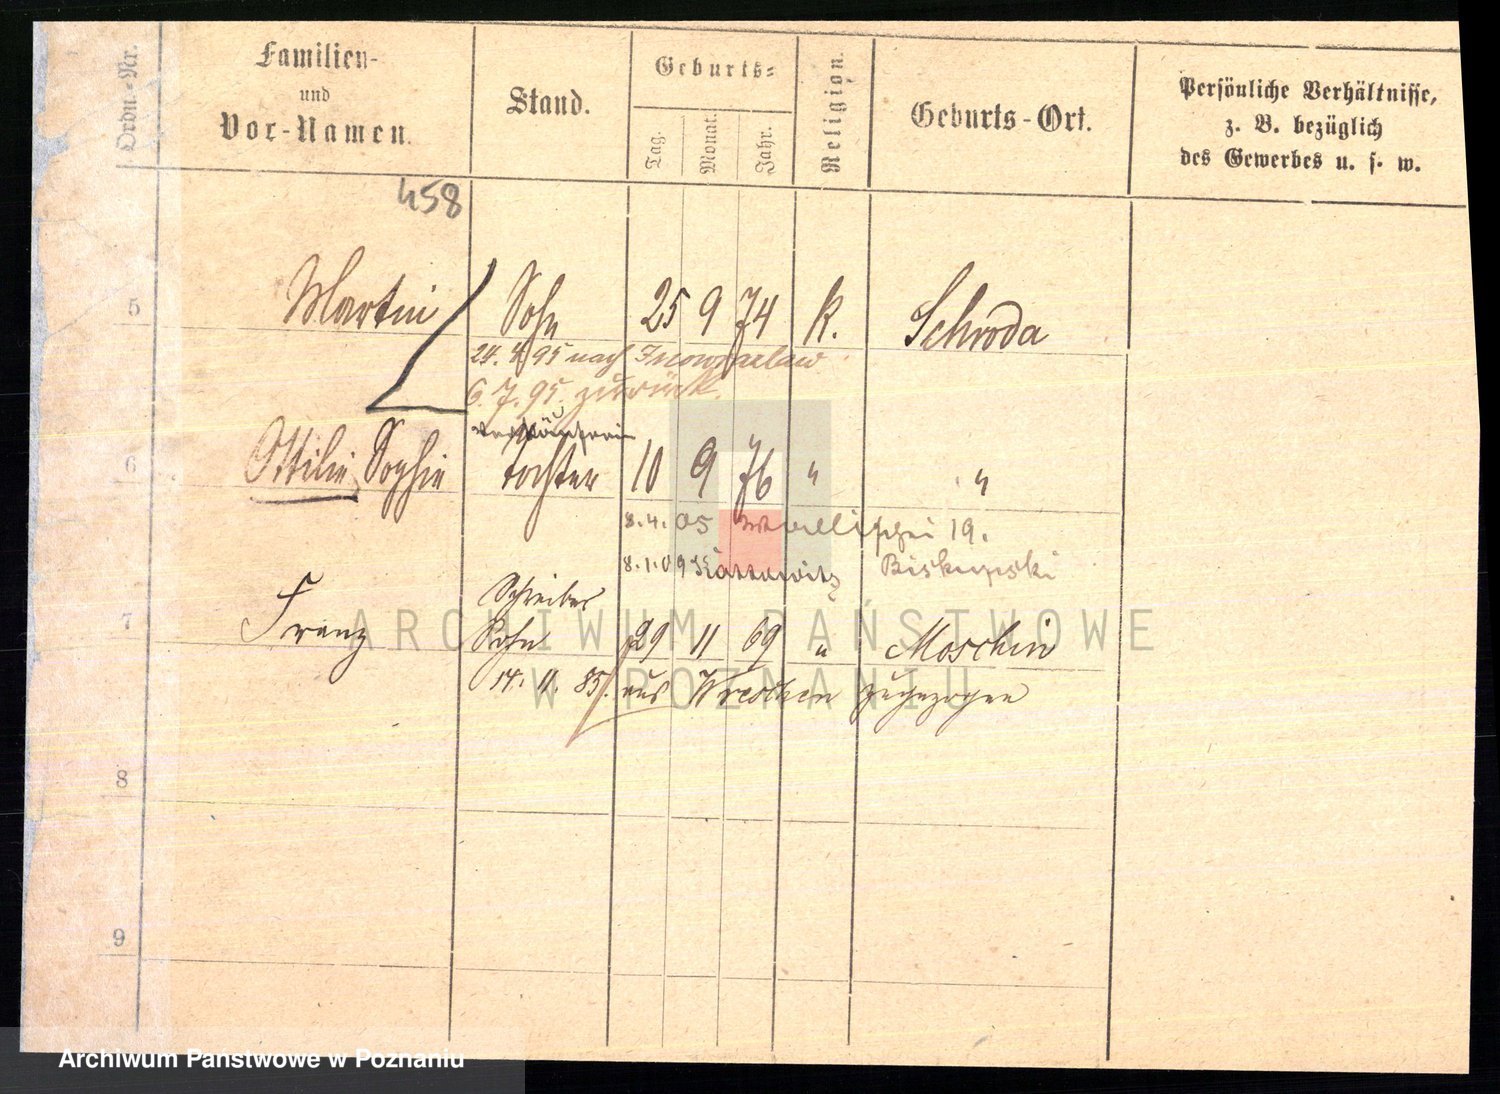 Ordn.-Nr. Familien- und Vor-Namen. Stand. Geburts- Tag. Monat. Jahr. Religion. Geburts-Ort. Persönliche Verhältnisse, z. B. bezüglich des Gewerbes u. s. w.
458
5 Martin Sohn 25 9 74 K. Schroda
24. 4. 95 nach Inowrazlaw
6. 7. 95. zurück.
Verkäuferin
6 Ottilie Sophie Tochter 10 9 76 " "
8.4.05 Wallischei 19.
8.1.09 Kattowitz Biskupski
Schreiber
7 Franz Sohn 29 11 69 " Moschin
14. 11. 85. aus Wreschen zugezogen
8
9
ARCHIWUM PAŃSTWOWE
W POZNANIU
Archiwum Państwowe w Poznaniu